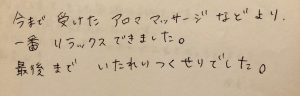 今まで 受けた アロマ マッサージ など より、
一番 リラックス できました。
最後まで いたれりつくせりでした。